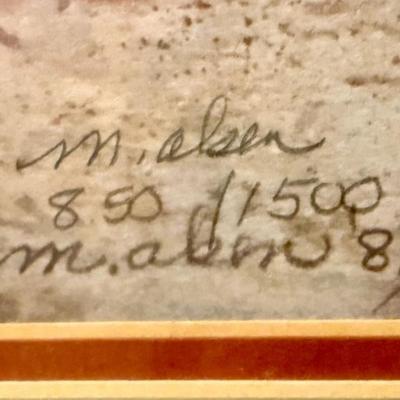 m. olsen
850 /1500
m. olsen 8